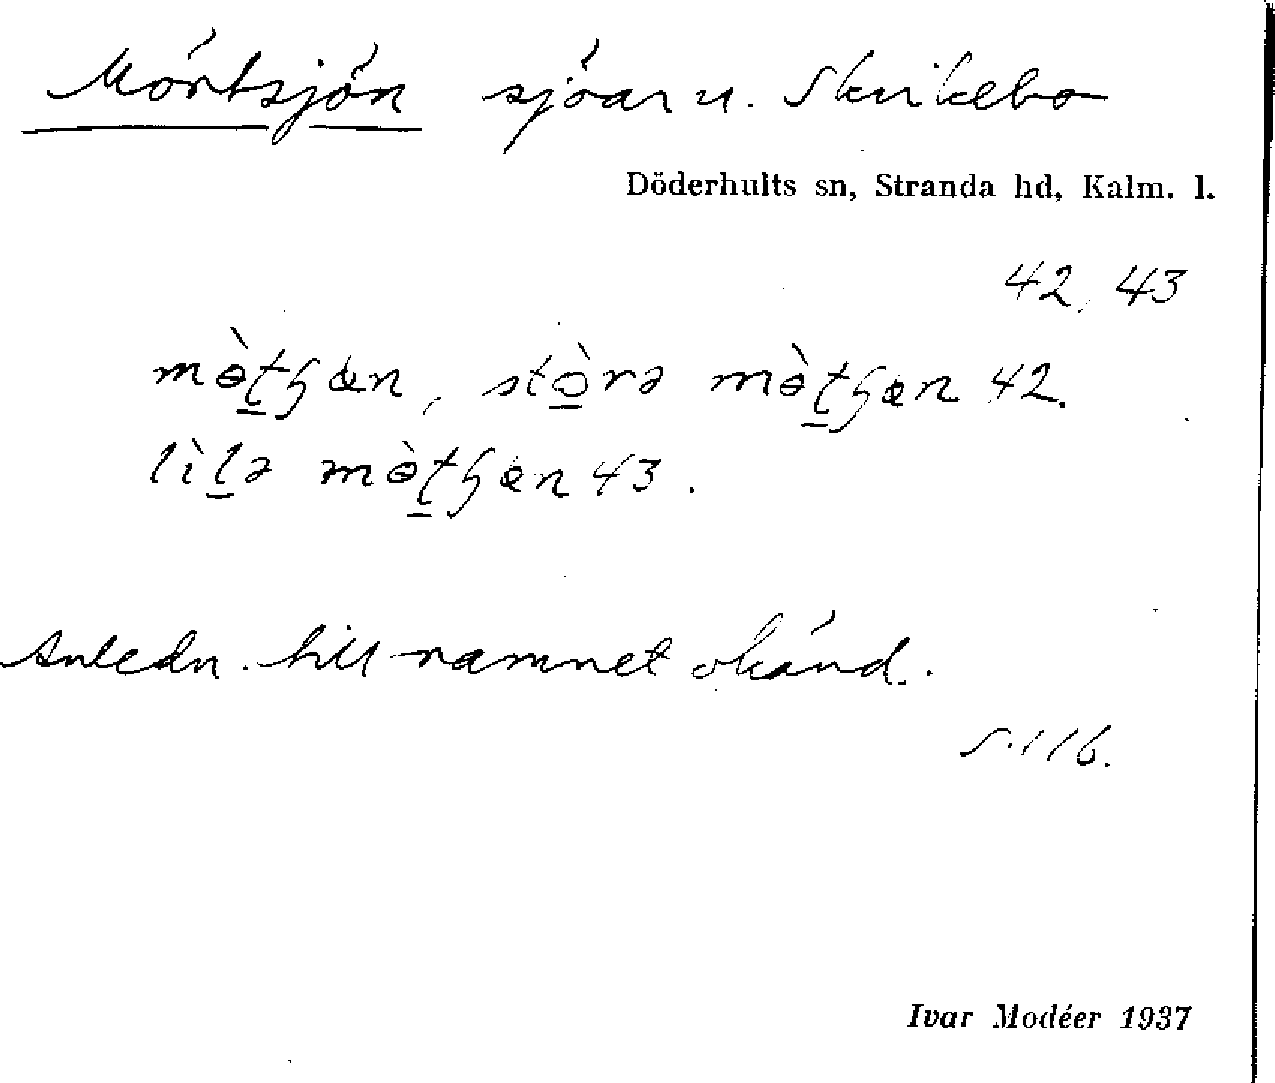 Mörtsjön sjöar u. Skrikebo
Döderhults sn, Stranda hd, Kalm. l.
42, 43
mə̀t̠ɧæn, stɔ̠̀rə mə̀t̠ɧæn 42.
lìl̠ə mə̀t̠ɧæn 43.
Anledn. till namnet okänd.
s. 116.
Ivar Modéer 1937